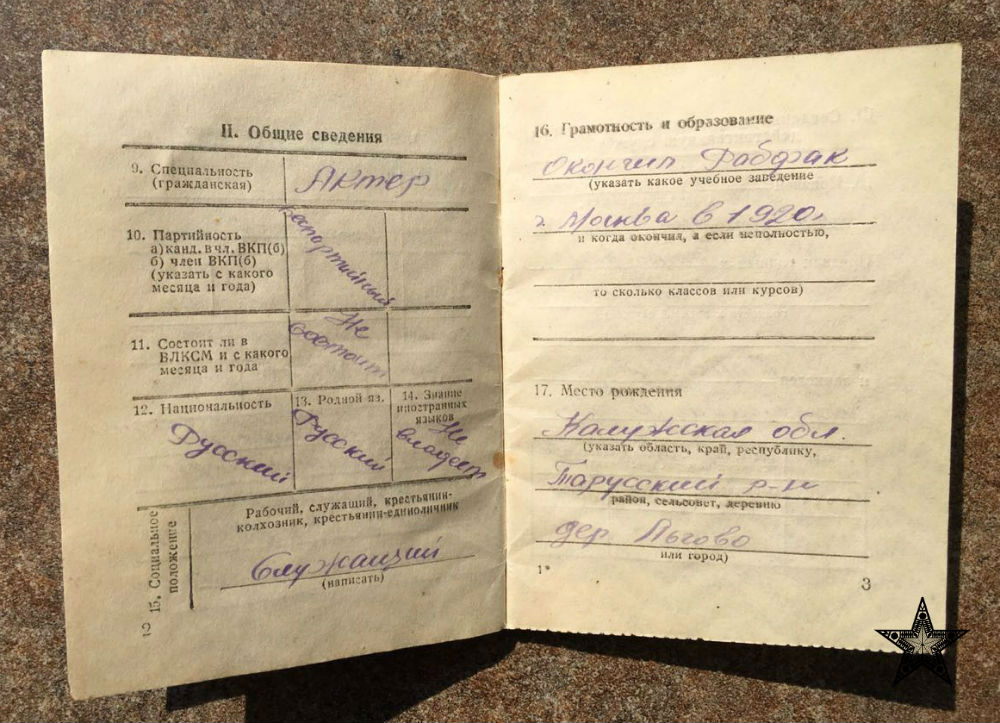 II. Общие сведения
9. Специальность
(гражданская)
Актер
10. Партийность
а) канд. в чл. ВКП(б)
б) член ВКП(б)
(указать с какого
месяца и года)
беспартийный
11. Состоит ли в
ВЛКСМ и с какого
месяца и года
Не
состоит
12. Национальность
Русский
13. Родной яз.
Русский
14. Знание
иностранных
языков
Не
владеет
15. Социальное
положение
Рабочий, служащий, крестьянин-
колхозник, крестьянин-единоличник
Служащий
(написать)
2
16. Грамотность и образование
окончил Рабфак
(указать какое учебное заведение
г. Москва в 1920г
и когда окончил, а если неполностью,
то сколько классов или курсов)
17. Место рождения
Калужская обл.
(указать область, край, республику,
Тарусский р-н
район, сельсовет, деревню
дер Льгово
или город)
1*
3